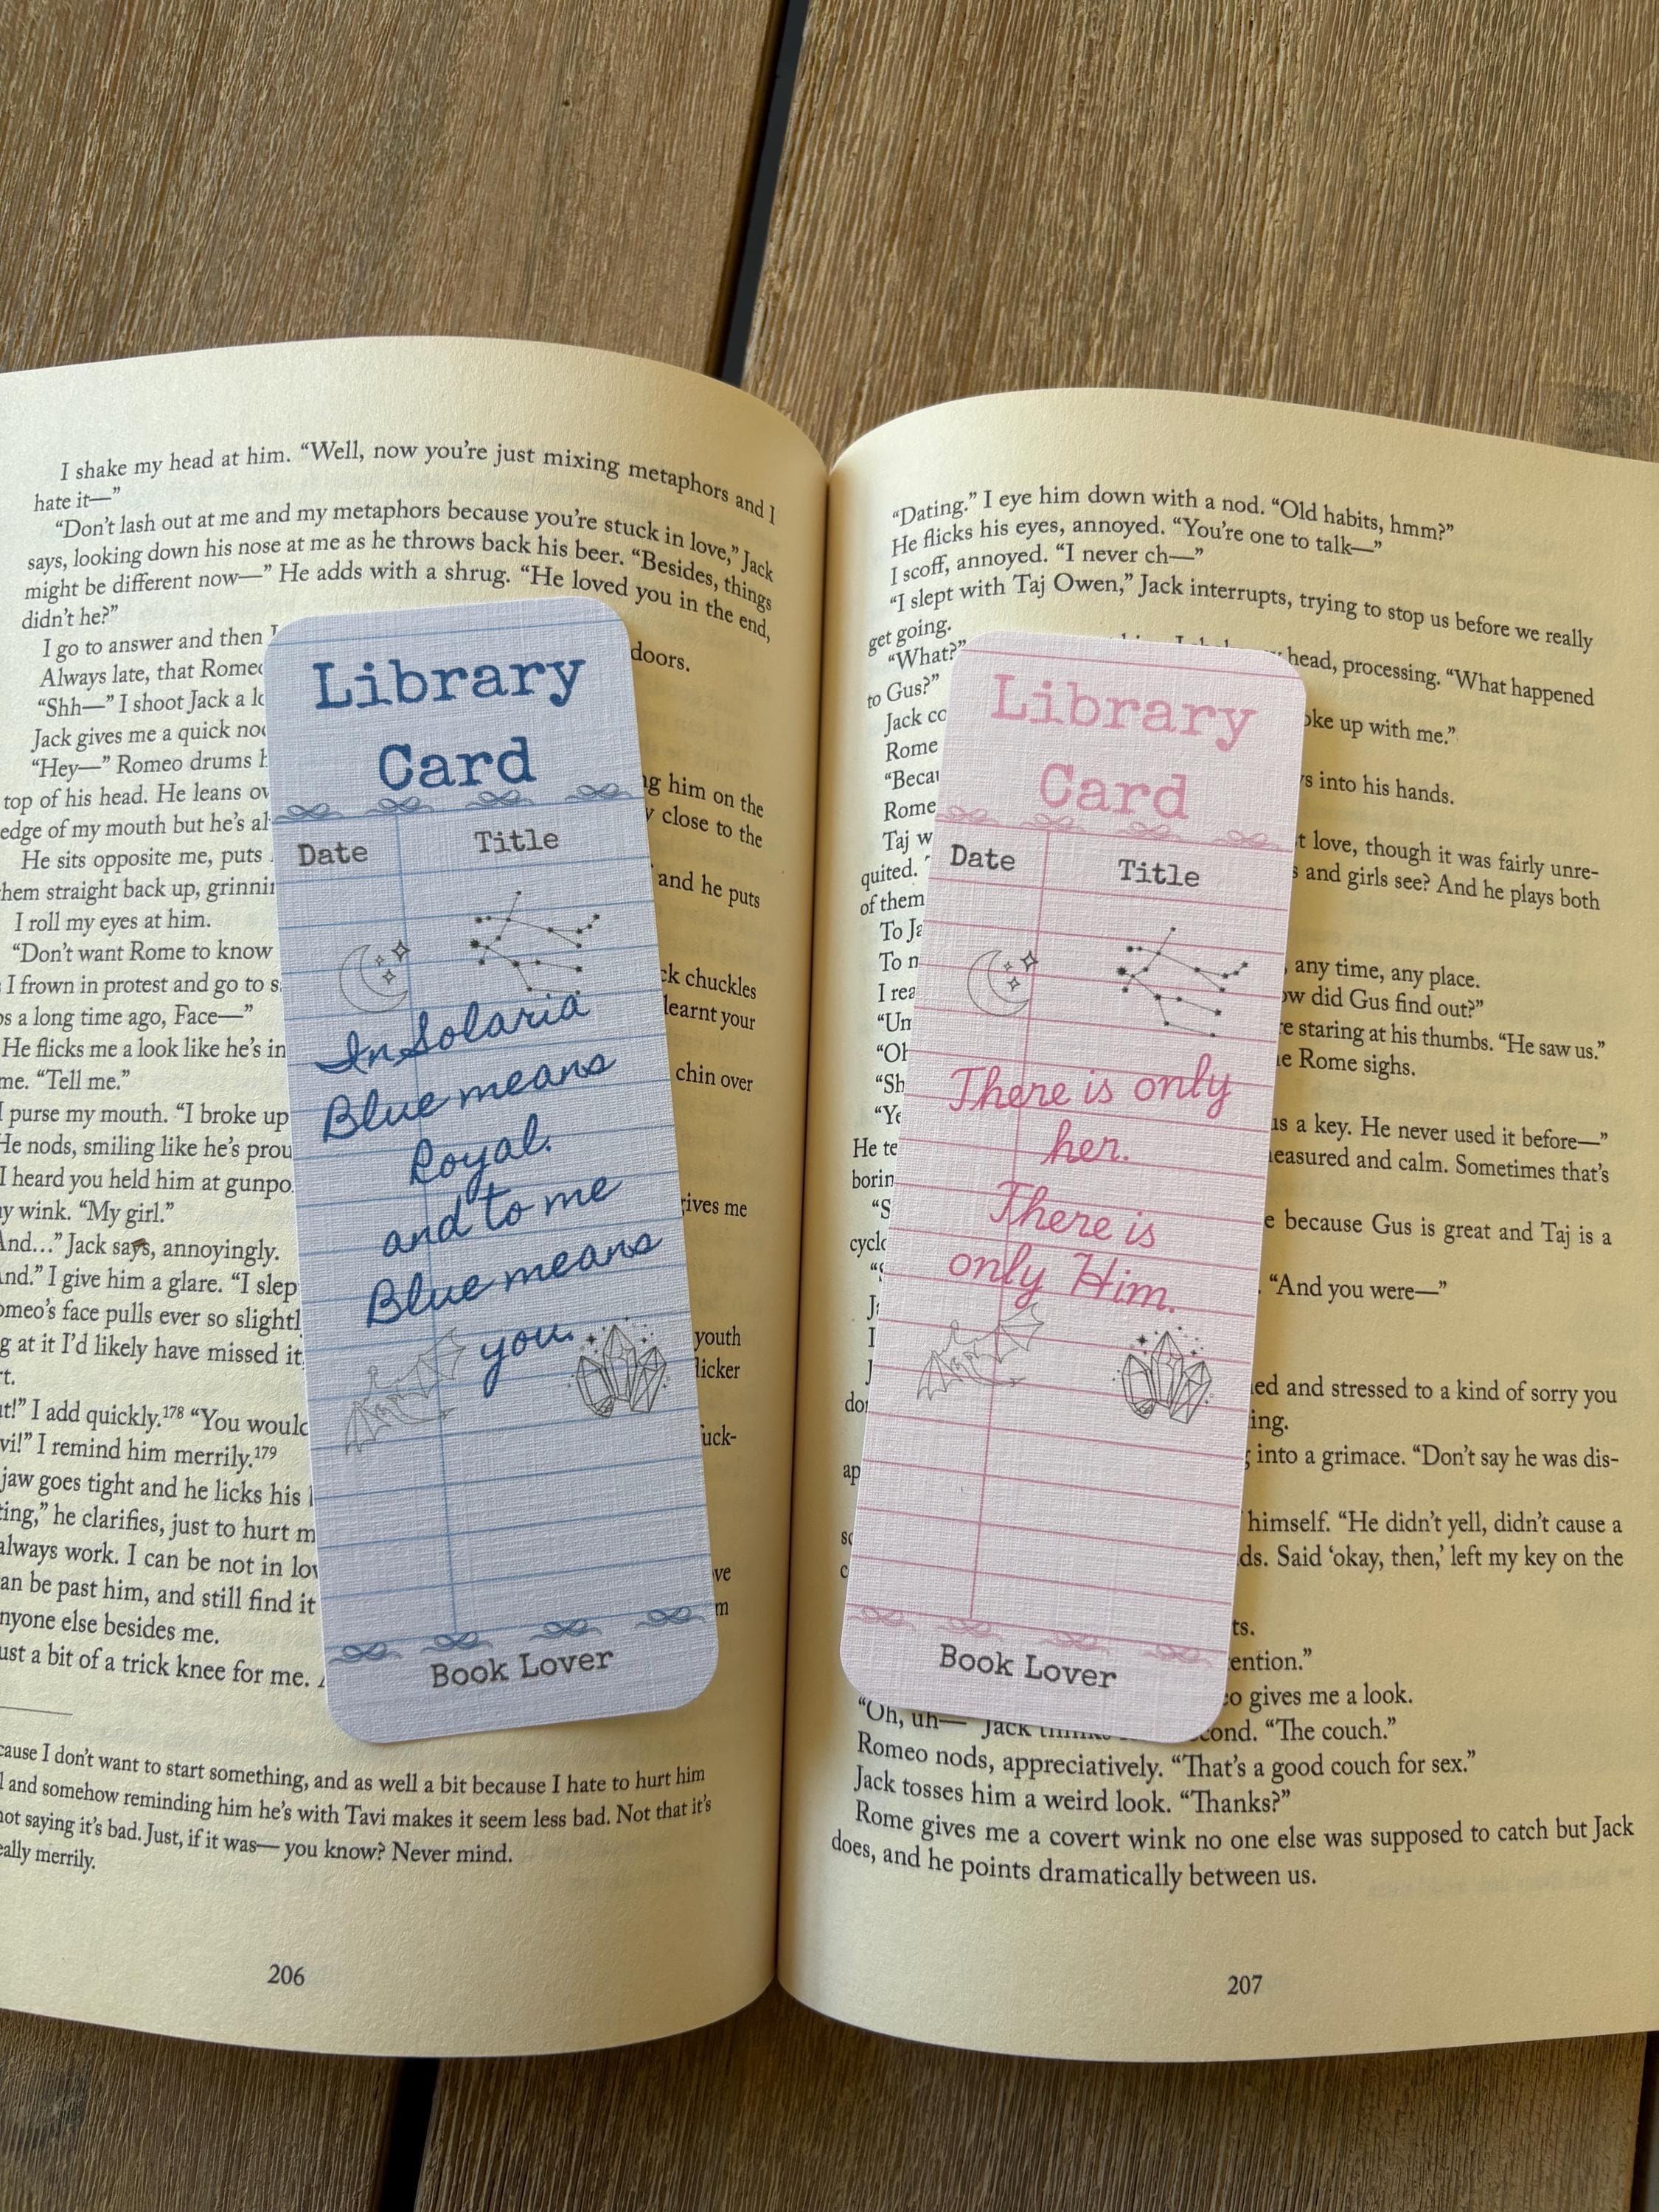 I shake my head at him. “Well, now you’re just mixing metaphors and I
hate it—”
“Don’t lash out at me and my metaphors because you’re stuck in love,” Jack
says, looking down his nose at me as he throws back his beer. “Besides, things
might be different now—” He adds with a shrug. “He loved you in the end,
didn’t he?”
I go to answer and then
doors.
Always late, that
“Shh—” I shoot Jack a
Jack gives me a quick
“Hey—” Romeo drums
him on the
top of his head. He leans
close to the
edge of my mouth but he’s
He sits opposite me, puts
and he puts
them straight back up,
I roll my eyes at him.
“Don’t want Rome to know
chuckles
I frown in protest and go to
learnt your
a long time ago, Face—”
He flicks me a look like he’s
chin over
me. “Tell me.”
I purse my mouth. “I broke up
He nods, smiling like he’s
I heard you held him at
gives me
wink. “My girl.”
And…” Jack says, annoyingly.
And.” I give him a glare. “I
youth
face pulls ever so
at it I’d likely have missed it
I add quickly.¹⁷⁸ “You
I remind him merrily.¹⁷⁹
jaw goes tight and he licks his
he clarifies, just to hurt
always work. I can be not in
be past him, and still find it
anyone else besides me.
just a bit of a trick knee for me.
I don’t want to start something, and as well a bit because I hate to hurt him
and somehow reminding him he’s with Tavi makes it seem less bad. Not that it’s
not saying it’s bad. Just, if it was— you know? Never mind.
merrily.
206
Library
Card
Date Title
In Solaria
Blue means
Royal.
and to me
Blue means
you.
Book Lover
“Dating.” I eye him down with a nod. “Old habits, hmm?”
He flicks his eyes, annoyed. “You’re one to talk—”
I scoff, annoyed. “I never ch—”
“I slept with Taj Owen,” Jack interrupts, trying to stop us before we really
get going.
“What?”
head, processing. “What happened
to Gus?”
Jack
up with me.”
Rome
into his hands.
Rome
Taj
love, though it was fairly unre-
quited.
and girls see? And he plays both
of them
To
any time, any place.
To
did Gus find out?”
I
staring at his thumbs. “He saw us.”
Rome sighs.
a key. He never used it before—”
He
measured and calm. Sometimes that’s
because Gus is great and Taj is a
“And you were—”
and stressed to a kind of sorry you
into a grimace. “Don’t say he was dis-
himself. “He didn’t yell, didn’t cause a
Said ‘okay, then,’ left my key on the
gives me a look.
“Oh, uh—” Jack
“The couch.”
Romeo nods, appreciatively. “That’s a good couch for sex.”
Jack tosses him a weird look. “Thanks?”
Rome gives me a covert wink no one else was supposed to catch but Jack
does, and he points dramatically between us.
207
Library
Card
Date Title
There is only
her.
There is
only Him.
Book Lover